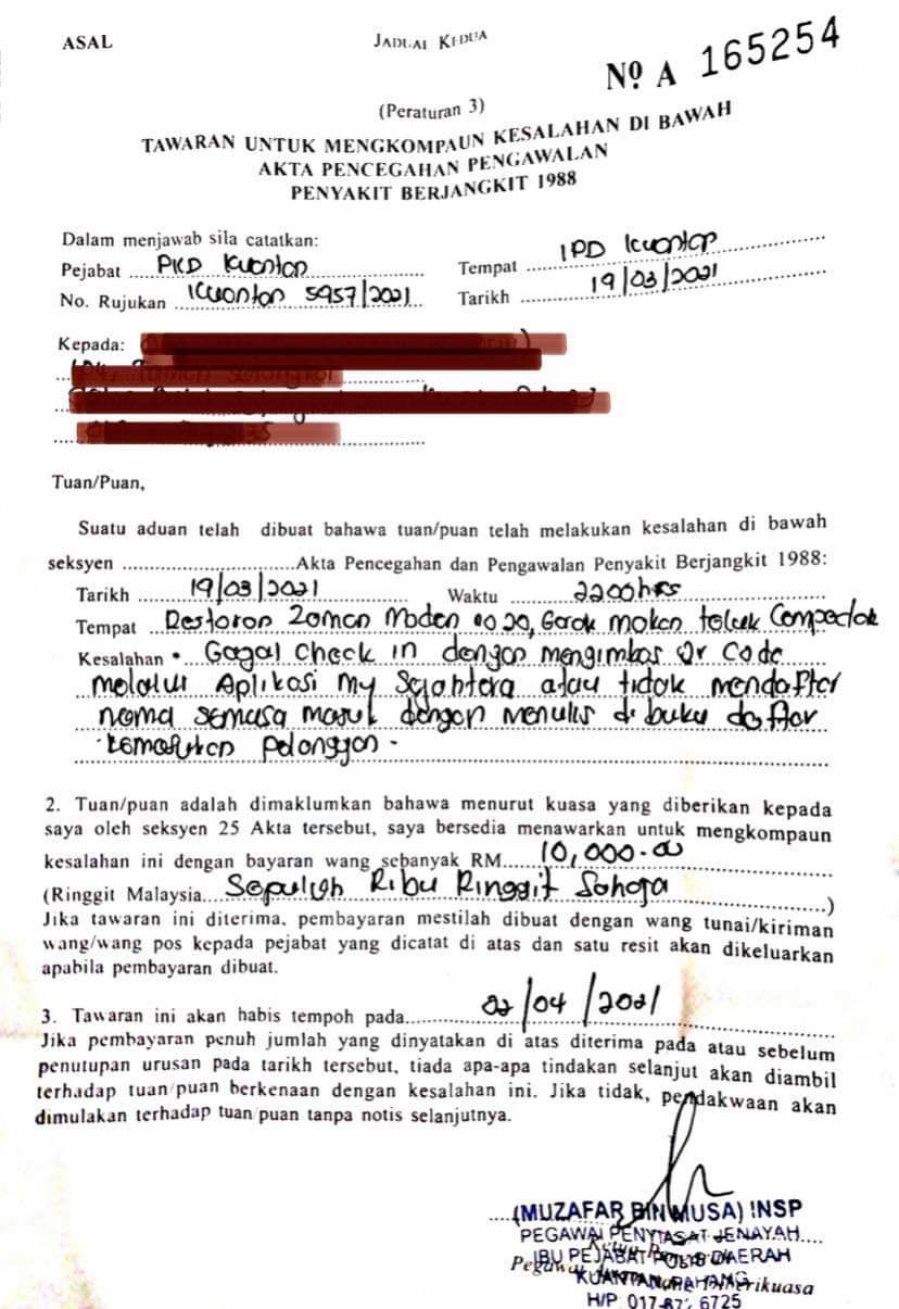 ASAL
JADUAL KEDUA
Nº A 165254
(Peraturan 3)
TAWARAN UNTUK MENGKOMPAUN KESALAHAN DI BAWAH
AKTA PENCEGAHAN PENGAWALAN
PENYAKIT BERJANGKIT 1988
Dalam menjawab sila catatkan:
Pejabat PKD Kuantan
Tempat IPD Kuantan
No. Rujukan Kuantan 5957/2021
Tarikh 19/03/2021
Kepada:
Tuan/Puan,
Suatu aduan telah dibuat bahawa tuan/puan telah melakukan kesalahan di bawah
seksyen Akta Pencegahan dan Pengawalan Penyakit Berjangkit 1988:
Tarikh 19/03/2021 Waktu 2200hrs
Tempat Restoran Zaman Moden no 20, Gerak makan teluk Cempedak
Kesalahan • Gagal Check in dengan mengimbas Qr Code
melalui Aplikasi My Sejahtera atau tidak mendaftar
nama semasa masuk dengan menulis di buku daftar
kemasukan pelanggan -
2. Tuan/puan adalah dimaklumkan bahawa menurut kuasa yang diberikan kepada
saya oleh seksyen 25 Akta tersebut, saya bersedia menawarkan untuk mengkompaun
kesalahan ini dengan bayaran wang sebanyak RM 10,000-00
(Ringgit Malaysia Sepuluh Ribu Ringgit Sahaja)
Jika tawaran ini diterima, pembayaran mestilah dibuat dengan wang tunai/kiriman
wang/wang pos kepada pejabat yang dicatat di atas dan satu resit akan dikeluarkan
apabila pembayaran dibuat.
3. Tawaran ini akan habis tempoh pada 02/04/2021
Jika pembayaran penuh jumlah yang dinyatakan di atas diterima pada atau sebelum
penutupan urusan pada tarikh tersebut, tiada apa-apa tindakan selanjut akan diambil
terhadap tuan/puan berkenaan dengan kesalahan ini. Jika tidak, pendakwaan akan
dimulakan terhadap tuan/puan tanpa notis selanjutnya.
(MUZAFAR BIN MUSA) INSP
PEGAWAI PENYIASAT JENAYAH
IBU PEJABAT POLIS DAERAH
KUANTAN, PAHANG
H/P 017-87 6725